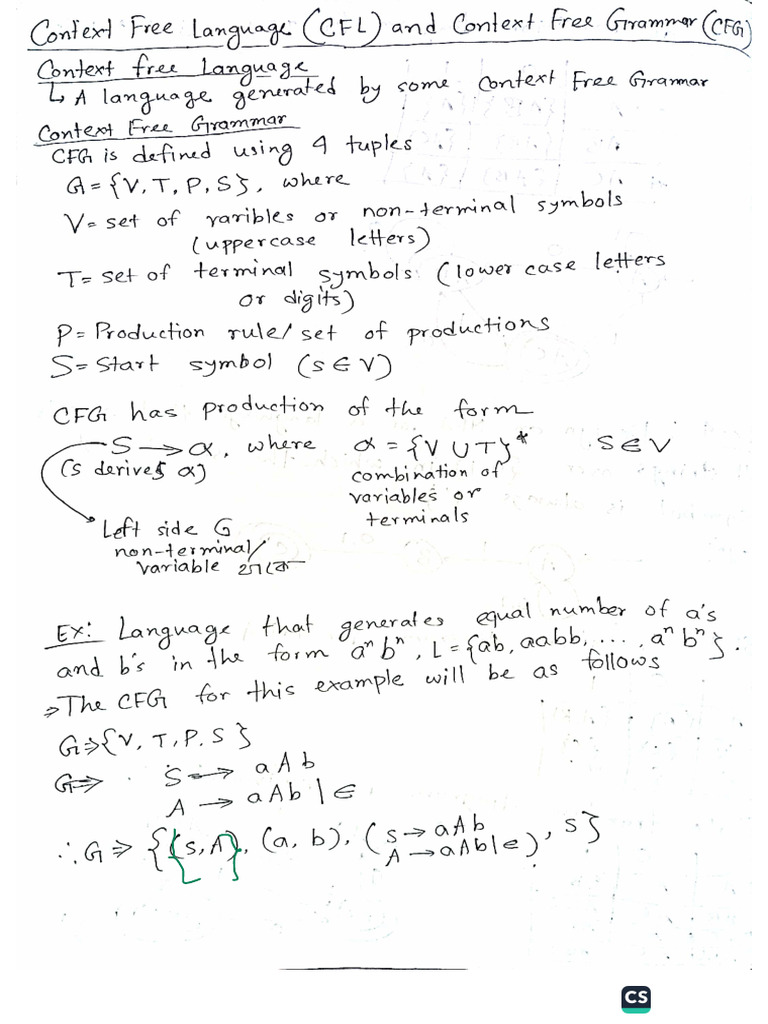 Context Free Language (CFL) and Context Free Grammar (CFG)
Context free Language
↳ A language generated by some Context Free Grammar
Context Free Grammar
CFG is defined using 4 tuples
G = {V, T, P, S}, where
V = set of varibles or non-terminal symbols
(uppercase letters)
T = set of terminal symbols (lower case letters
or digits)
P = Production rule/ set of productions
S = Start symbol (S ∈ V)
CFG has production of the form
S → α, where α = {V ∪ T}* S ∈ V
(S derives α)
combination of
variables or
terminals
Left side G
non-terminal/
variable থাকে
Ex: Language that generates equal number of a's
and b's in the form aⁿbⁿ, L = {ab, aabb, ...., aⁿbⁿ}.
⇒ The CFG for this example will be as follows
G ⇒ {V, T, P, S}
G ⇒ S → aAb
A → aAb | ∈
∴ G ⇒ {{S, A}, (a, b), (S → aAb
A → aAb | ∈), S}
CS